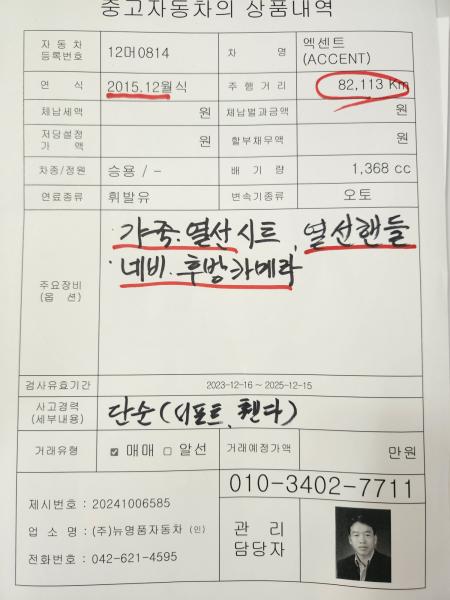 중고자동차의 상품내역
자 동 차
등록번호
12머0814
차 명
엑센트
(ACCENT)
연 식
2015.12월식
주 행 거 리
82,113 Km
체납세액
원
체납벌과금액
원
저당설정
가 액
원
할부채무액
원
차종/정원
승용 / -
배 기 량
1,368 cc
연료종류
휘발유
변속기종류
오토
주요장비
(옵 션)
가죽.열선 시트, 열선핸들
네비. 후방카메라
검사유효기간
2023-12-16 ~ 2025-12-15
사고경력
(세부내용)
단순 (서포트, 휀다)
거래유형
매매
알선
거래예정가액
만원
010-3402-7711
제시번호 : 20241006585
업 소 명 : (주)뉴명품자동차 (인)
전화번호 : 042-621-4595
관 리
담당자